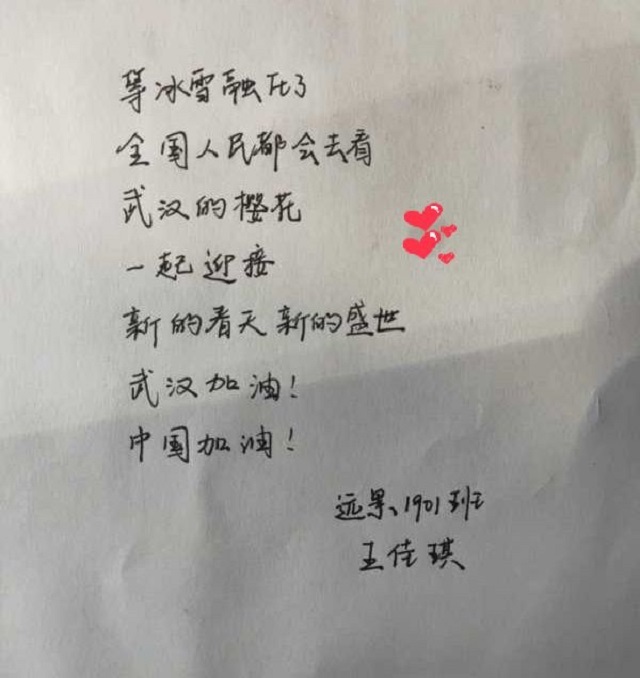 等冰雪融化了
全国人民都会去看
武汉的樱花
一起迎接
新的春天新的盛世
武汉加油！
中国加油！
远景、1901班
王佳琪